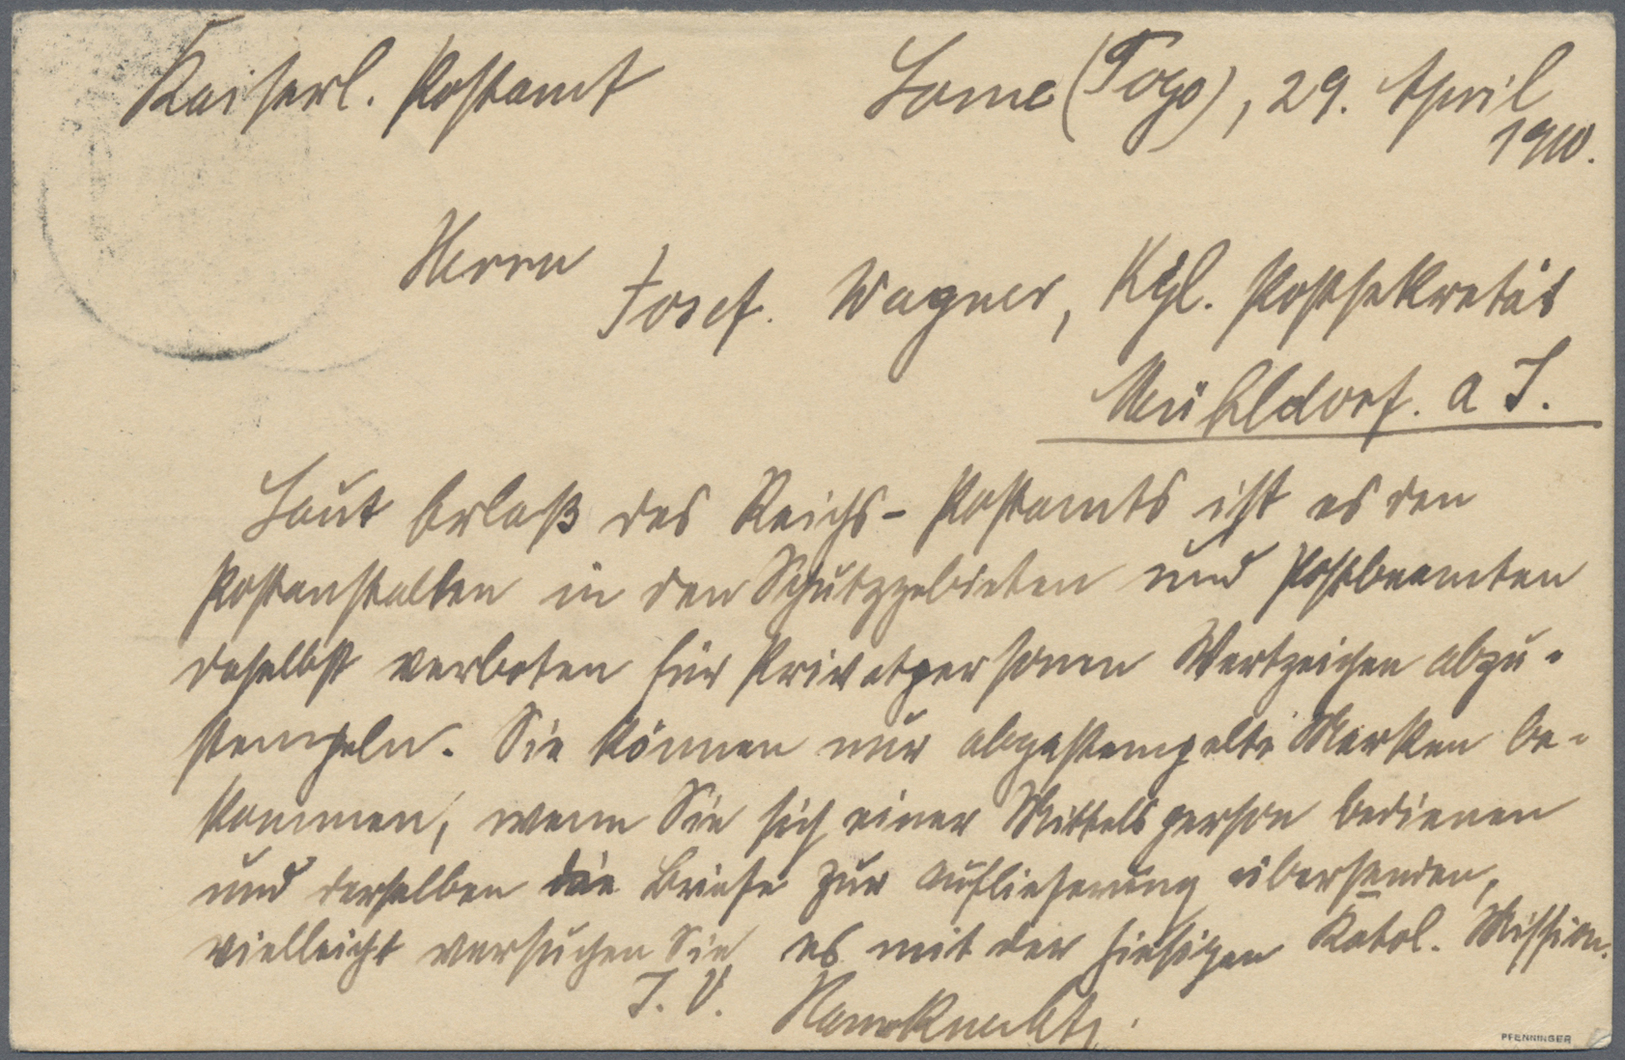 Kaiserl. Postamt
Lome (Togo), 29. April
1910.
Herrn
Josef Wagner, Kgl. Postsekretär
Mühldorf. a I.
Laut Erlaß des Reichs-Postamts ist es den
Postanstalten in den Schutzgebieten und Postbeamten
daselbst verboten für Privatpersonen Wertzeichen abzu-
stempeln. Sie können nur abgestempelte Marken be-
kommen, wenn Sie sich einer Mittelsperson bedienen
und derselben die Briefe zur Auflieferung übersenden,
vielleicht versuchen Sie es mit der hiesigen Katol. Mission.
I. V.
PFENNINGER